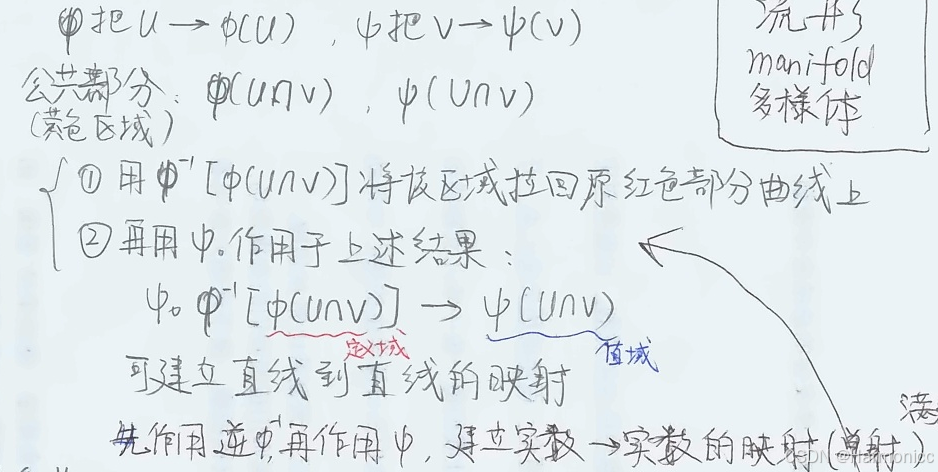 φ把U→φ(U),ψ把V→ψ(V)
流形
manifold
多様体
公共部分:φ(U∩V),ψ(U∩V)
(黄色区域)
①用φ⁻¹[φ(U∩V)]将该区域拉回原红色部分曲线上
②再用ψ。作用于上述结果:
ψ∘φ⁻¹[φ(U∩V)]→ψ(U∩V)
定义域
值域
可建立直线到直线的映射
满
先作用逆φ⁻¹,再作用ψ,建立实数→实数的映射(单射)
CSDN